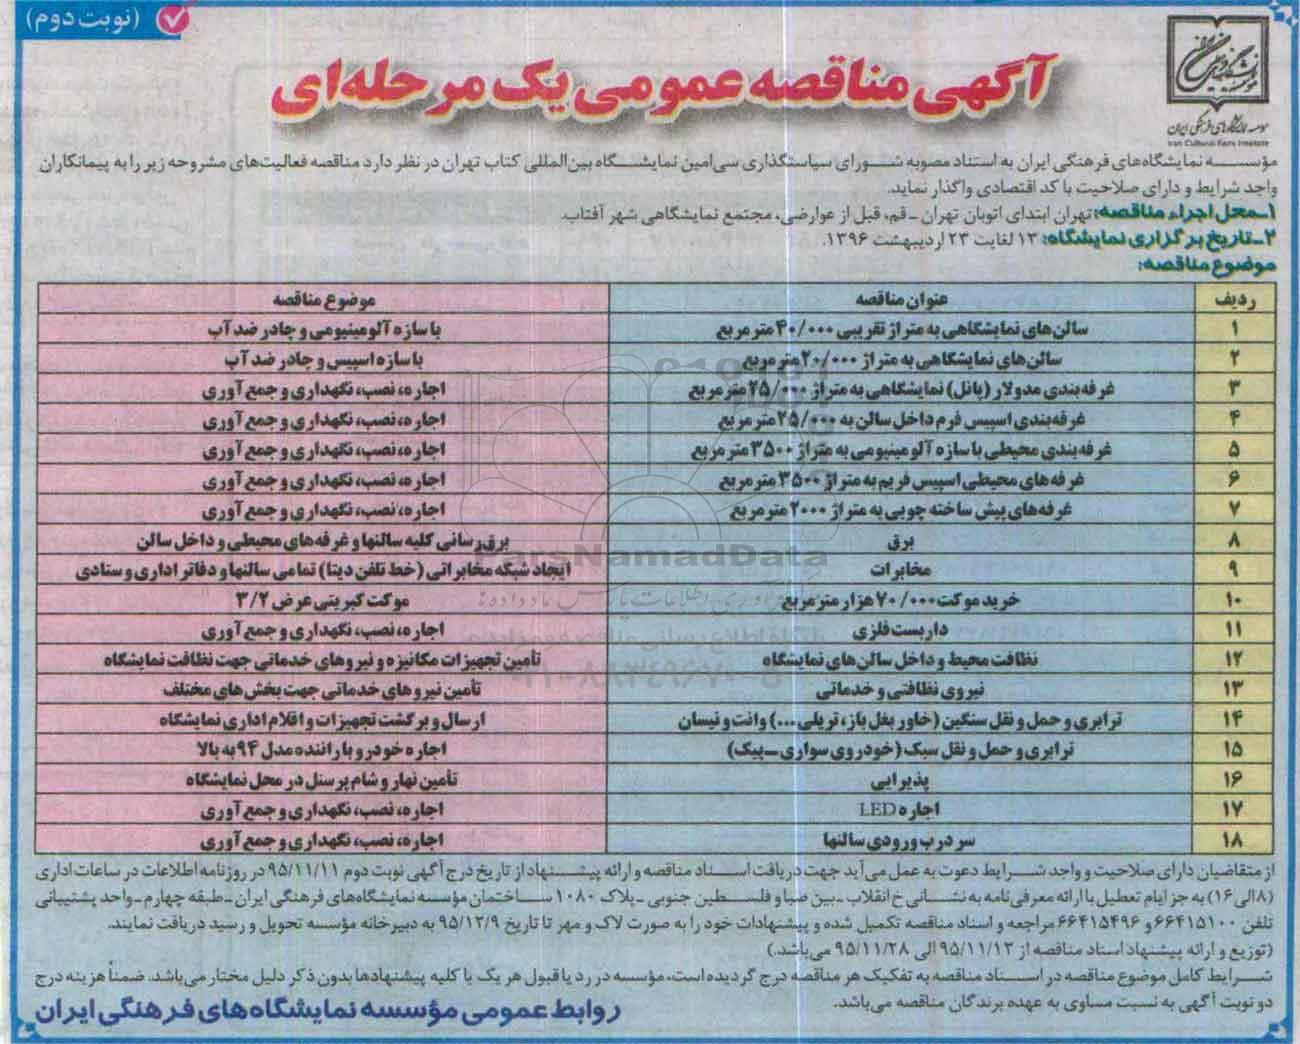 (نوبت دوم)
موسسه نمایشگاههای فرهنگی ایران
Iran Cultural Fairs Institute
آگهی مناقصه عمومی یک مرحله‌ای
مؤسسه نمایشگاه‌های فرهنگی ایران به استناد مصوبه شورای سیاستگذاری سی‌امین نمایشگاه بین‌المللی کتاب تهران در نظر دارد مناقصه فعالیت‌های مشروحه زیر را به پیمانکاران
واجد شرایط و دارای صلاحیت با کد اقتصادی واگذار نماید.
۱ـ محل اجراء مناقصه: تهران ابتدای اتوبان تهران ـ قم، قبل از عوارضی، مجتمع نمایشگاهی شهر آفتاب.
۲ـ تاریخ برگزاری نمایشگاه: ۱۳ لغایت ۲۳ اردیبهشت ۱۳۹۶.
موضوع مناقصه:
ردیف عنوان مناقصه موضوع مناقصه
۱ سالن‌های نمایشگاهی به متراژ تقریبی ۴۰/۰۰۰ مترمربع با سازه آلومینیومی و چادر ضدآب
۲ سالن‌های نمایشگاهی به متراژ ۲۰/۰۰۰ مترمربع با سازه اسپیس و چادر ضد آب
۳ غرفه‌بندی مدولار (پانل) نمایشگاهی به متراژ ۲۵/۰۰۰ مترمربع اجاره، نصب، نگهداری و جمع آوری
۴ غرفه‌بندی اسپیس فرم داخل سالن به ۲۵/۰۰۰ مترمربع اجاره، نصب، نگهداری و جمع آوری
۵ غرفه‌بندی محیطی با سازه آلومینیومی به متراژ ۳۵۰۰ مترمربع اجاره، نصب، نگهداری و جمع آوری
۶ غرفه‌های محیطی اسپیس فریم به متراژ ۳۵۰۰ مترمربع اجاره، نصب، نگهداری و جمع آوری
۷ غرفه‌های پیش ساخته چوبی به متراژ ۲۰۰۰ مترمربع اجاره، نصب، نگهداری و جمع آوری
۸ برق برق‌رسانی کلیه سالنها و غرفه‌های محیطی و داخل سالن
۹ مخابرات ایجاد شبکه مخابراتی (خط تلفن دیتا) تمامی سالنها و دفاتر اداری و ستادی
۱۰ خرید موکت ۷۰/۰۰۰ هزار مترمربع موکت کبریتی عرض ۳/۲
۱۱ داربست فلزی اجاره، نصب، نگهداری و جمع آوری
۱۲ نظافت محیط و داخل سالن‌های نمایشگاه تأمین تجهیزات مکانیزه و نیروهای خدماتی جهت نظافت نمایشگاه
۱۳ نیروی نظافتی و خدماتی تأمین نیروهای خدماتی جهت بخش‌های مختلف
۱۴ ترابری و حمل و نقل سنگین (خاور بغل باز، تریلی...) وانت و نیسان ارسال و برگشت تجهیزات و اقلام اداری نمایشگاه
۱۵ ترابری و حمل و نقل سبک (خودروی سواری ـ پیک) اجاره خودرو با راننده مدل ۹۴ به بالا
۱۶ پذیرایی تأمین نهار و شام پرسنل در محل نمایشگاه
۱۷ اجاره LED اجاره، نصب، نگهداری و جمع آوری
۱۸ سردرب ورودی سالنها اجاره، نصب، نگهداری و جمع آوری
ParsNamadData
۰۲۱-۸۸۳۴۹۶۷۰-۵
از متقاضیان دارای صلاحیت و واجد شرایط دعوت به عمل می‌آید جهت دریافت اسناد مناقصه و ارائه پیشنهاد از تاریخ درج آگهی نوبت دوم ۹۵/۱۱/۱۱ در روزنامه اطلاعات در ساعات اداری
(۸ الی ۱۶) به جز ایام تعطیل با ارائه معرفی‌نامه به نشانی خ انقلاب ـ بین صبا و فلسطین جنوبی ـ پلاک ۱۰۸۰ ساختمان مؤسسه نمایشگاه‌های فرهنگی ایران ـ طبقه چهارم ـ واحد پشتیبانی
تلفن ۶۶۴۱۵۱۰۰ و ۶۶۴۱۵۴۹۶ مراجعه و اسناد مناقصه تکمیل شده و پیشنهادات خود را به صورت لاک و مهر تا تاریخ ۹۵/۱۲/۹ به دبیرخانه مؤسسه تحویل و رسید دریافت نمایند.
(توزیع و ارائه پیشنهاد اسناد مناقصه از ۹۵/۱۱/۱۲ الی ۹۵/۱۱/۲۸ می‌باشد.)
شرایط کامل موضوع مناقصه در اسناد مناقصه به تفکیک هر مناقصه درج گردیده است، مؤسسه در رد یا قبول هر یک یا کلیه پیشنهادها بدون ذکر دلیل مختار می‌باشد. ضمناً هزینه درج
دو نوبت آگهی به نسبت مساوی به عهده برندگان مناقصه می‌باشد.
روابط عمومی مؤسسه نمایشگاه‌های فرهنگی ایران